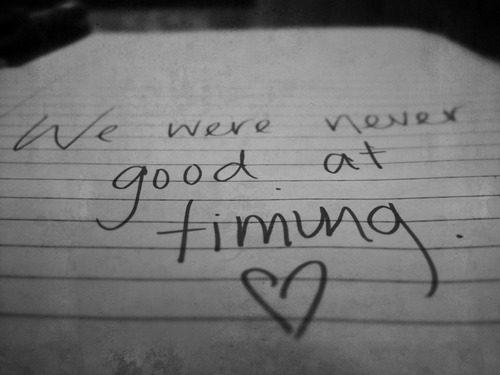 We were never
good at
timing.